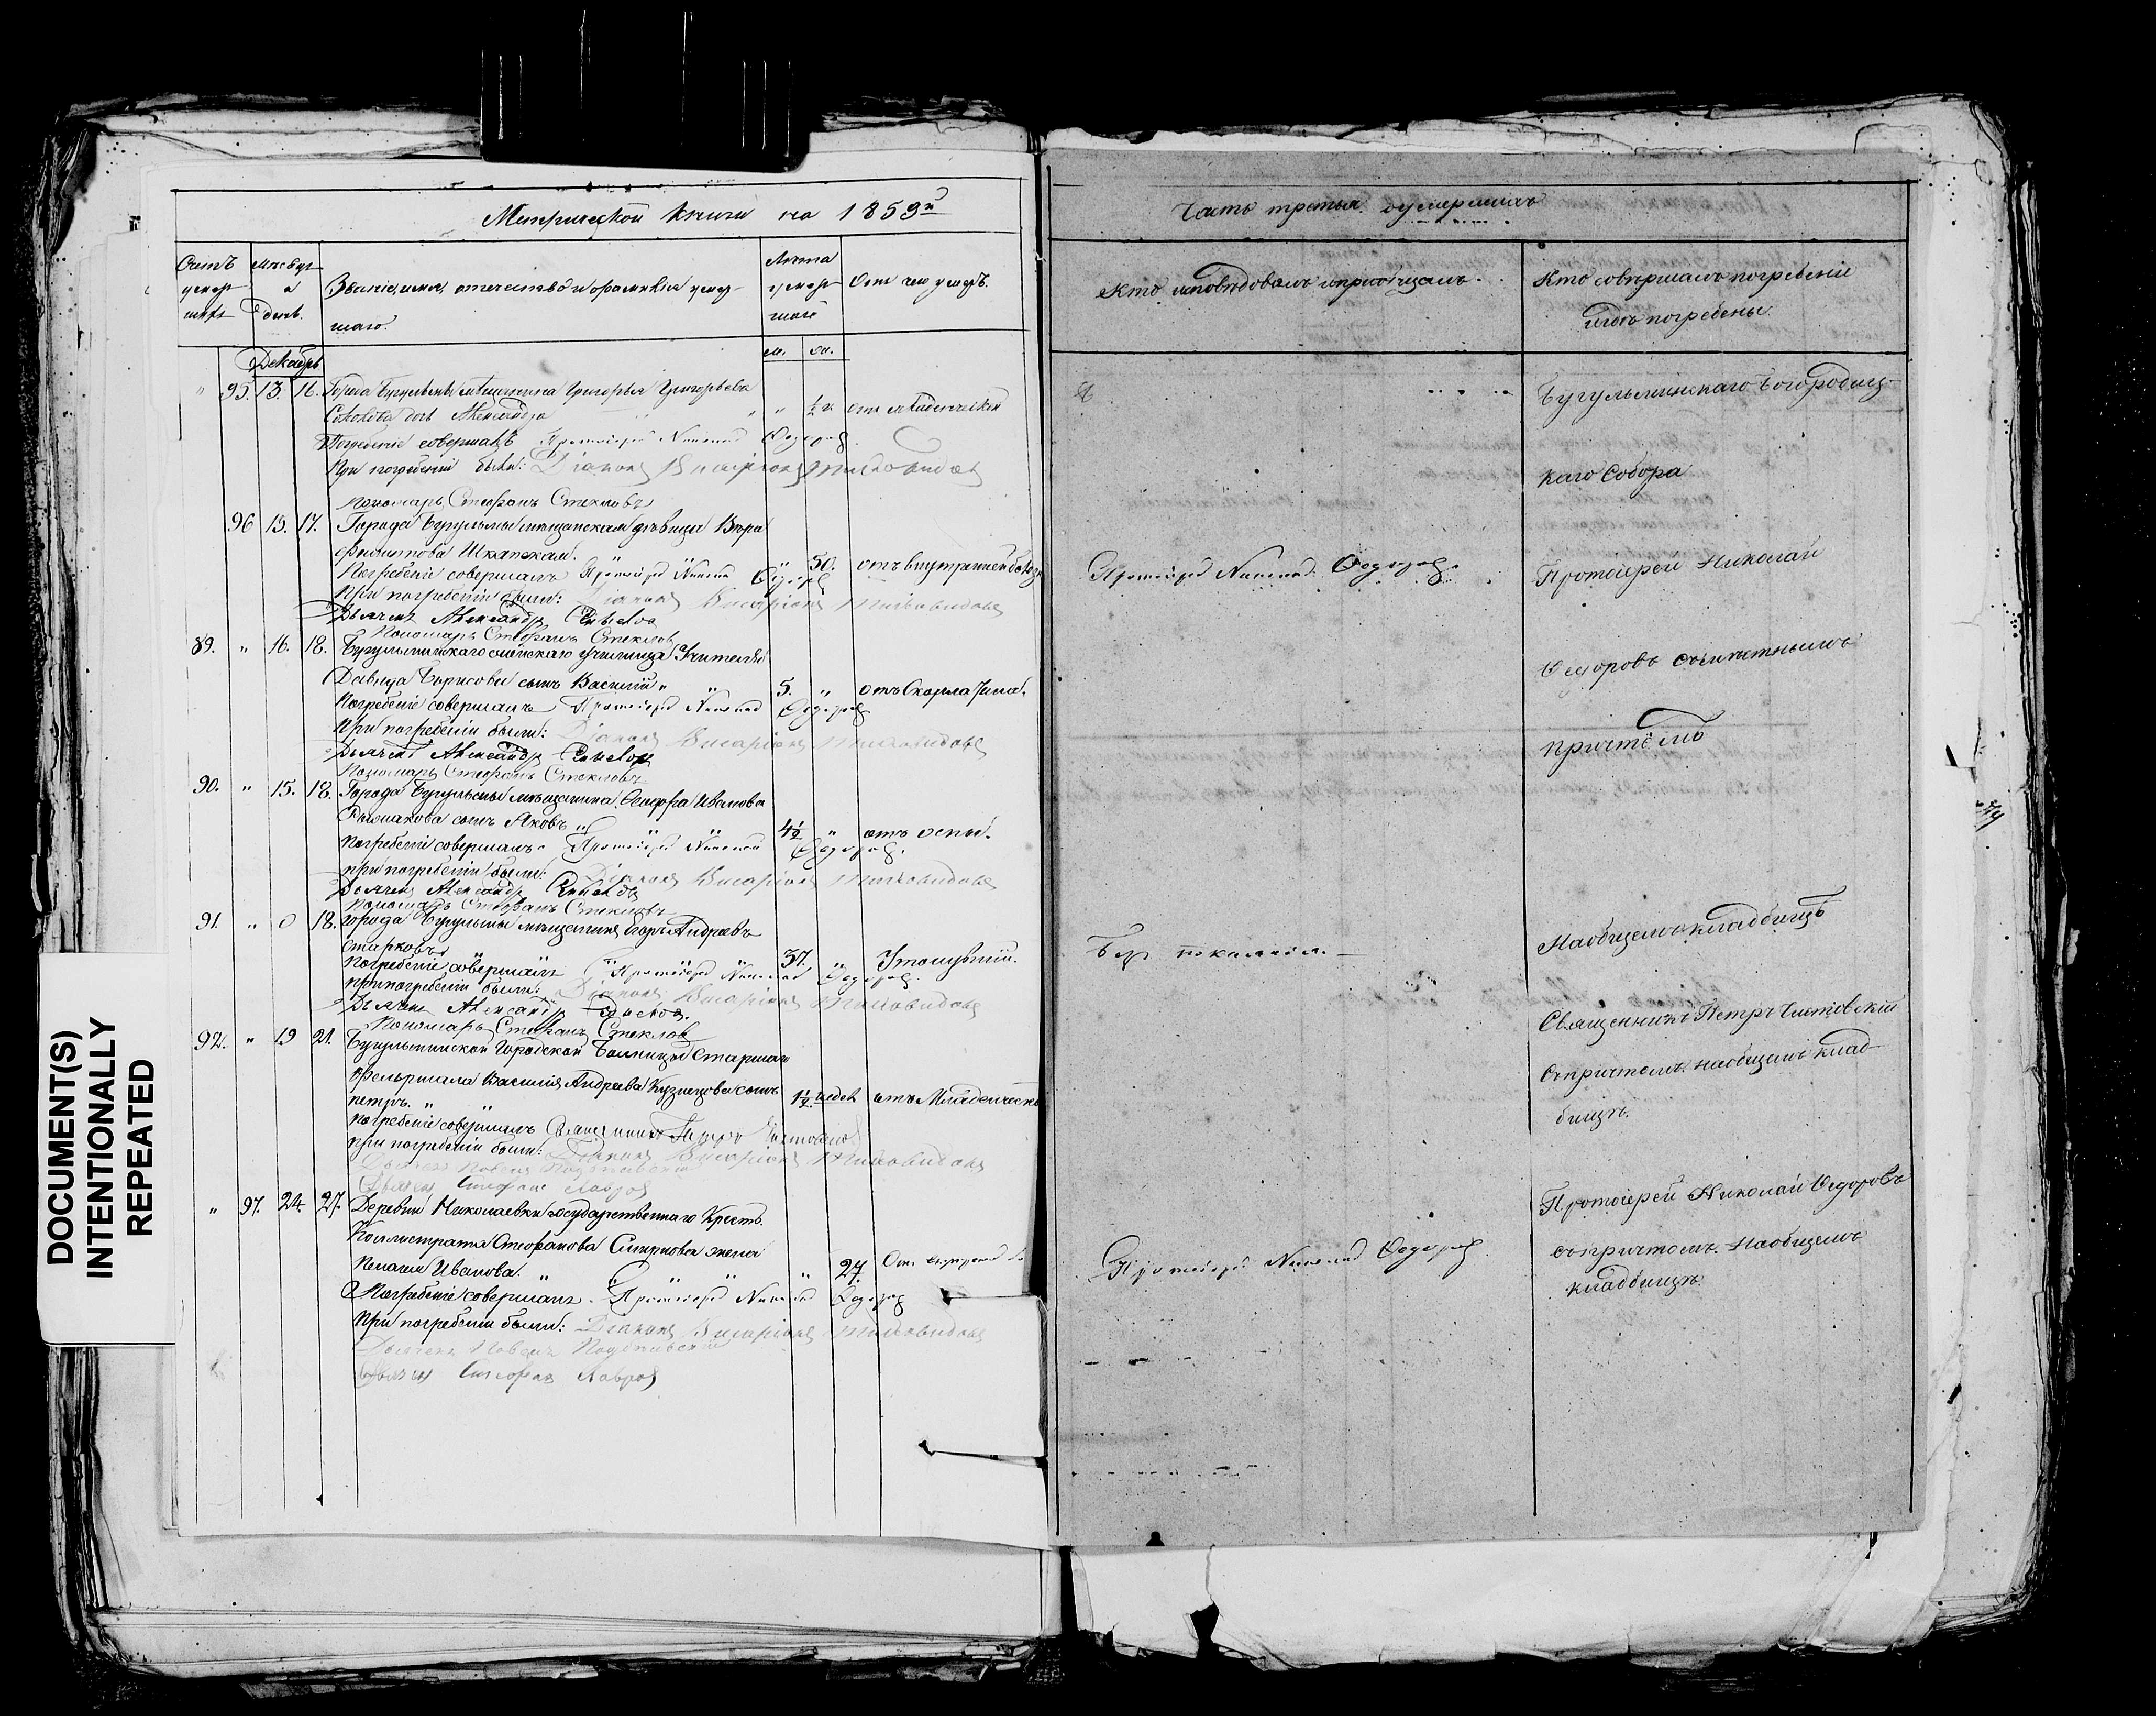 Метрической книги на 1859й
Счетъ умер-шихъ
Мѣсяцъ и день.
Званіе, имя, отчество и фамилія умер-
шаго.
Лѣта умер-шаго
Отъ чего умеръ.
Декабрь
м. ж.
" 95. 13. 16. Города Бугульмы мѣщанина Григорья Григорьева
Соколова дочь Александра " " ½ г. отъ младенческой
Погребеніе совершалъ Протоіерей Николай Федоровъ
При погребеніи были: Діаконъ Висаріонъ Миловидовъ
Пономарь Стефанъ Стекловъ
96 15. 17. Города Бугульмы мѣщанская дѣвица Вѣра
Филипова " 50. отъ внутренней
Погребеніе совершалъ Протоіерей Николай Федоровъ
При погребеніи были: Діаконъ Висаріонъ Миловидовъ
Дьячекъ Александръ
Пономарь Стефанъ Стекловъ
89. " 16. 18. Бугульминскаго училища Учителя
Давида Борисова сынъ Василій " " 5. " отъ Скарлатина.
Погребеніе совершалъ Протоіерей Николай Федоровъ
При погребеніи были: Діаконъ Висаріонъ Миловидовъ
Дьячекъ Александръ
Пономарь Стефанъ Стекловъ
90. " 15. 18. Города Бугульмы мѣщанина Иванова
сынъ Яковъ " " " 4½ " отъ оспы.
Погребеніе совершалъ Протоіерей Николай Федоровъ.
при погребеніи были: Діаконъ Висаріонъ Миловидовъ
Дьячекъ Александръ
Пономарь Стефанъ Стекловъ
91. " 0 18. города Бугульмы мѣщанинъ Егоръ Андреевъ
Старковъ " " " 37. " Утопшій.
Погребеніе совершалъ Протоіерей Николай Федоровъ.
при погребеніи были: Діаконъ Висаріонъ Миловидовъ
Дьячекъ Александръ
Пономарь Стефанъ Стекловъ
92. " 19 21. Бугульминской Городской Больницы Старшаго
Фельдшала Василія Андреева Кузнецова сынъ
петръ. " " 1½ недѣл отъ Младенческ
погребеніе совершалъ Священникъ Петръ Чистовскій
при погребеніи были: Діаконъ Висаріонъ Миловидовъ
Дьячекъ Павелъ
Дьячекъ Стефанъ Лавровъ
" 97. 24. 27. Деревни Николаевки государственнаго Крестья.
Каллистрата Стефанова Смирнова жена
Пелагея Иванова. " " " " " 27. Отъ
Погребеніе совершалъ Протоіерей Николай Федоровъ
При погребеніи были: Діаконъ Висаріонъ Миловидовъ
Дьячекъ Павелъ
Дьячекъ Стефанъ Лавровъ
Часть третья. о умершихъ
Кто исповѣдовалъ и пріобщалъ.
Кто совершалъ погребеніе
и гдѣ погребены.
Бугульминскаго Богородиц-
каго Собора
Протоіерей Николай Федоровъ.
Протоіерей Николай
Федоровъ съ
причтомъ
На общемъ кладбищѣ
Безъ покаянія.
Священникъ Петръ Чистовскій
съ причтомъ на общемъ клад-
бищѣ.
Протоіерей Николай Федоровъ.
Протоіерей Николай Федоровъ
съ причтомъ. На общемъ
кладбищѣ.
DOCUMENT(S)
INTENTIONALLY
REPEATED